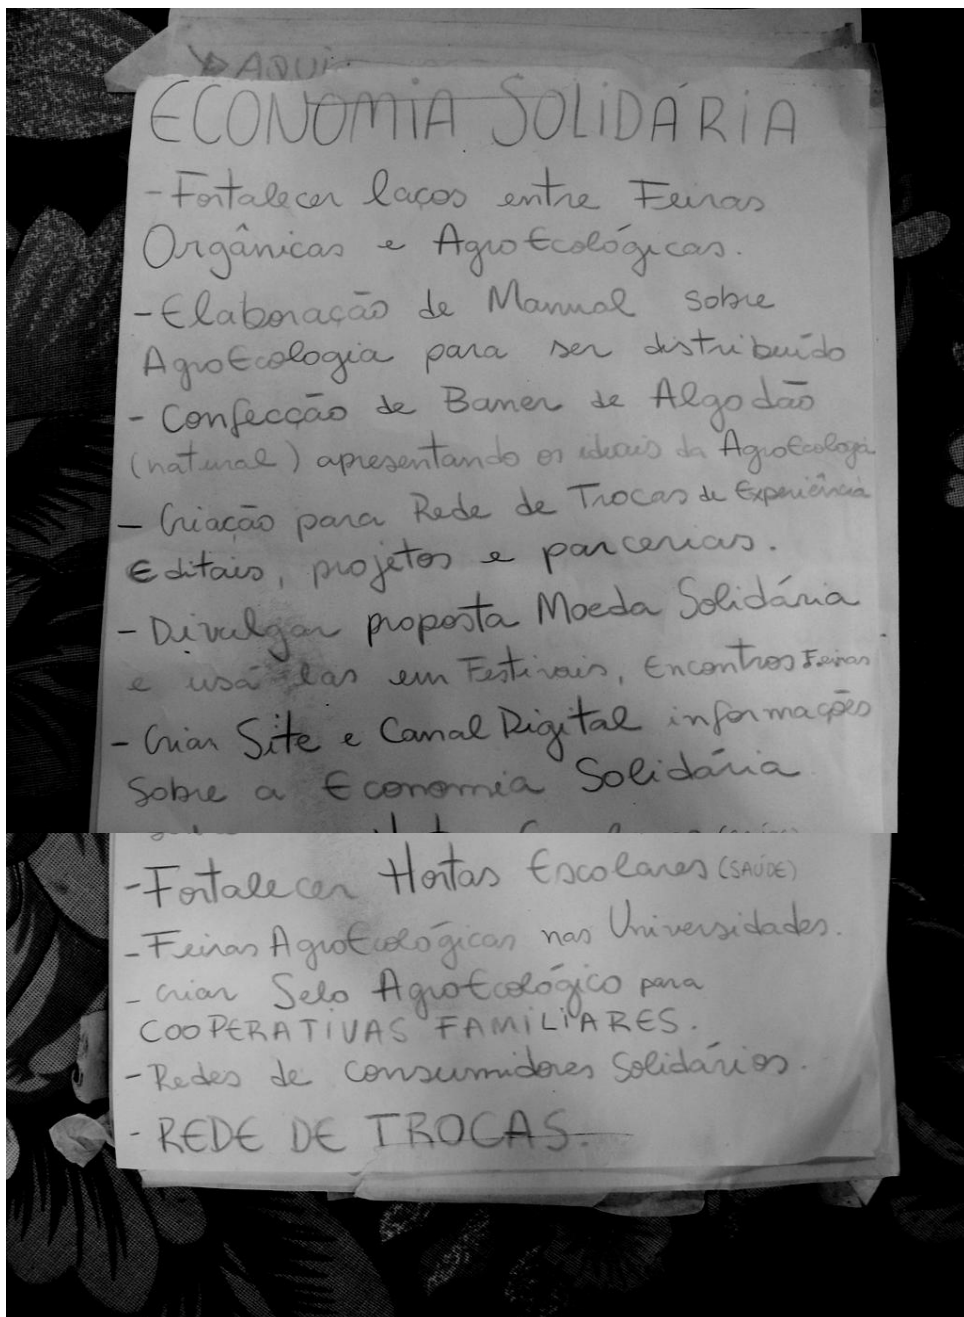 AQUI:
ECONOMIA SOLIDÁRIA
- Fortalecer laços entre Feiras
Orgânicas e AgroEcológicas.
- Elaboração de Manual sobre
AgroEcologia para ser distribuído
- Confecção de Baner de Algodão
(natural) apresentando os ideais da AgroEcologia
- Criação para Rede de Trocas de Experiência
Editais, projetos e parcerias.
- Divulgar proposta Moeda Solidária
e usá las em Festivais, Encontros Feiras
- Criar Site e Canal Digital informações
Sobre a Economia Solidária
- Fortalecer Hortas Escolares (SAÚDE)
- Feiras AgroEcológicas nas Universidades.
- Criar Selo AgroEcológico para
COOPERATIVAS FAMILIARES.
- Redes de Consumidores Solidários.
- REDE DE TROCAS.